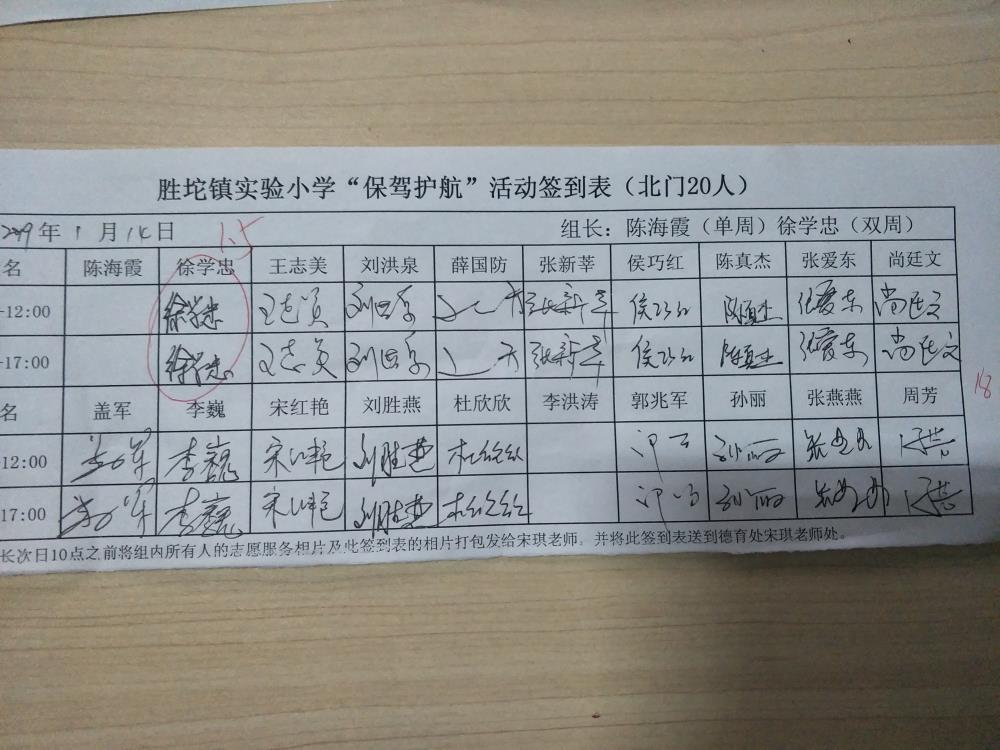 胜坨镇实验小学“保驾护航”活动签到表（北门20人）
2019年1月14日 1.5 组长：陈海霞（单周）徐学忠（双周）
名 陈海霞 徐学忠 王志美 刘洪泉 薛国防 张新莘 侯巧红 陈真杰 张爱东 尚廷文
-12:00 徐学忠 王志美 刘洪泉 张新莘 侯巧红 陈真杰 张爱东 尚廷文
-17:00 徐学忠 王志美 刘洪泉 张新莘 侯巧红 陈真杰 张爱东 尚廷文
18
名 盖军 李巍 宋红艳 刘胜燕 杜欣欣 李洪涛 郭兆军 孙丽 张燕燕 周芳
-12:00 盖军 李巍 宋红艳 刘胜燕 杜欣欣 孙丽 周芳
17:00 盖军 李巍 宋红艳 刘胜燕 杜欣欣 孙丽 周芳
长次日10点之前将组内所有人的志愿服务相片及此签到表的相片打包发给宋琪老师，并将此签到表送到德育处宋琪老师处。